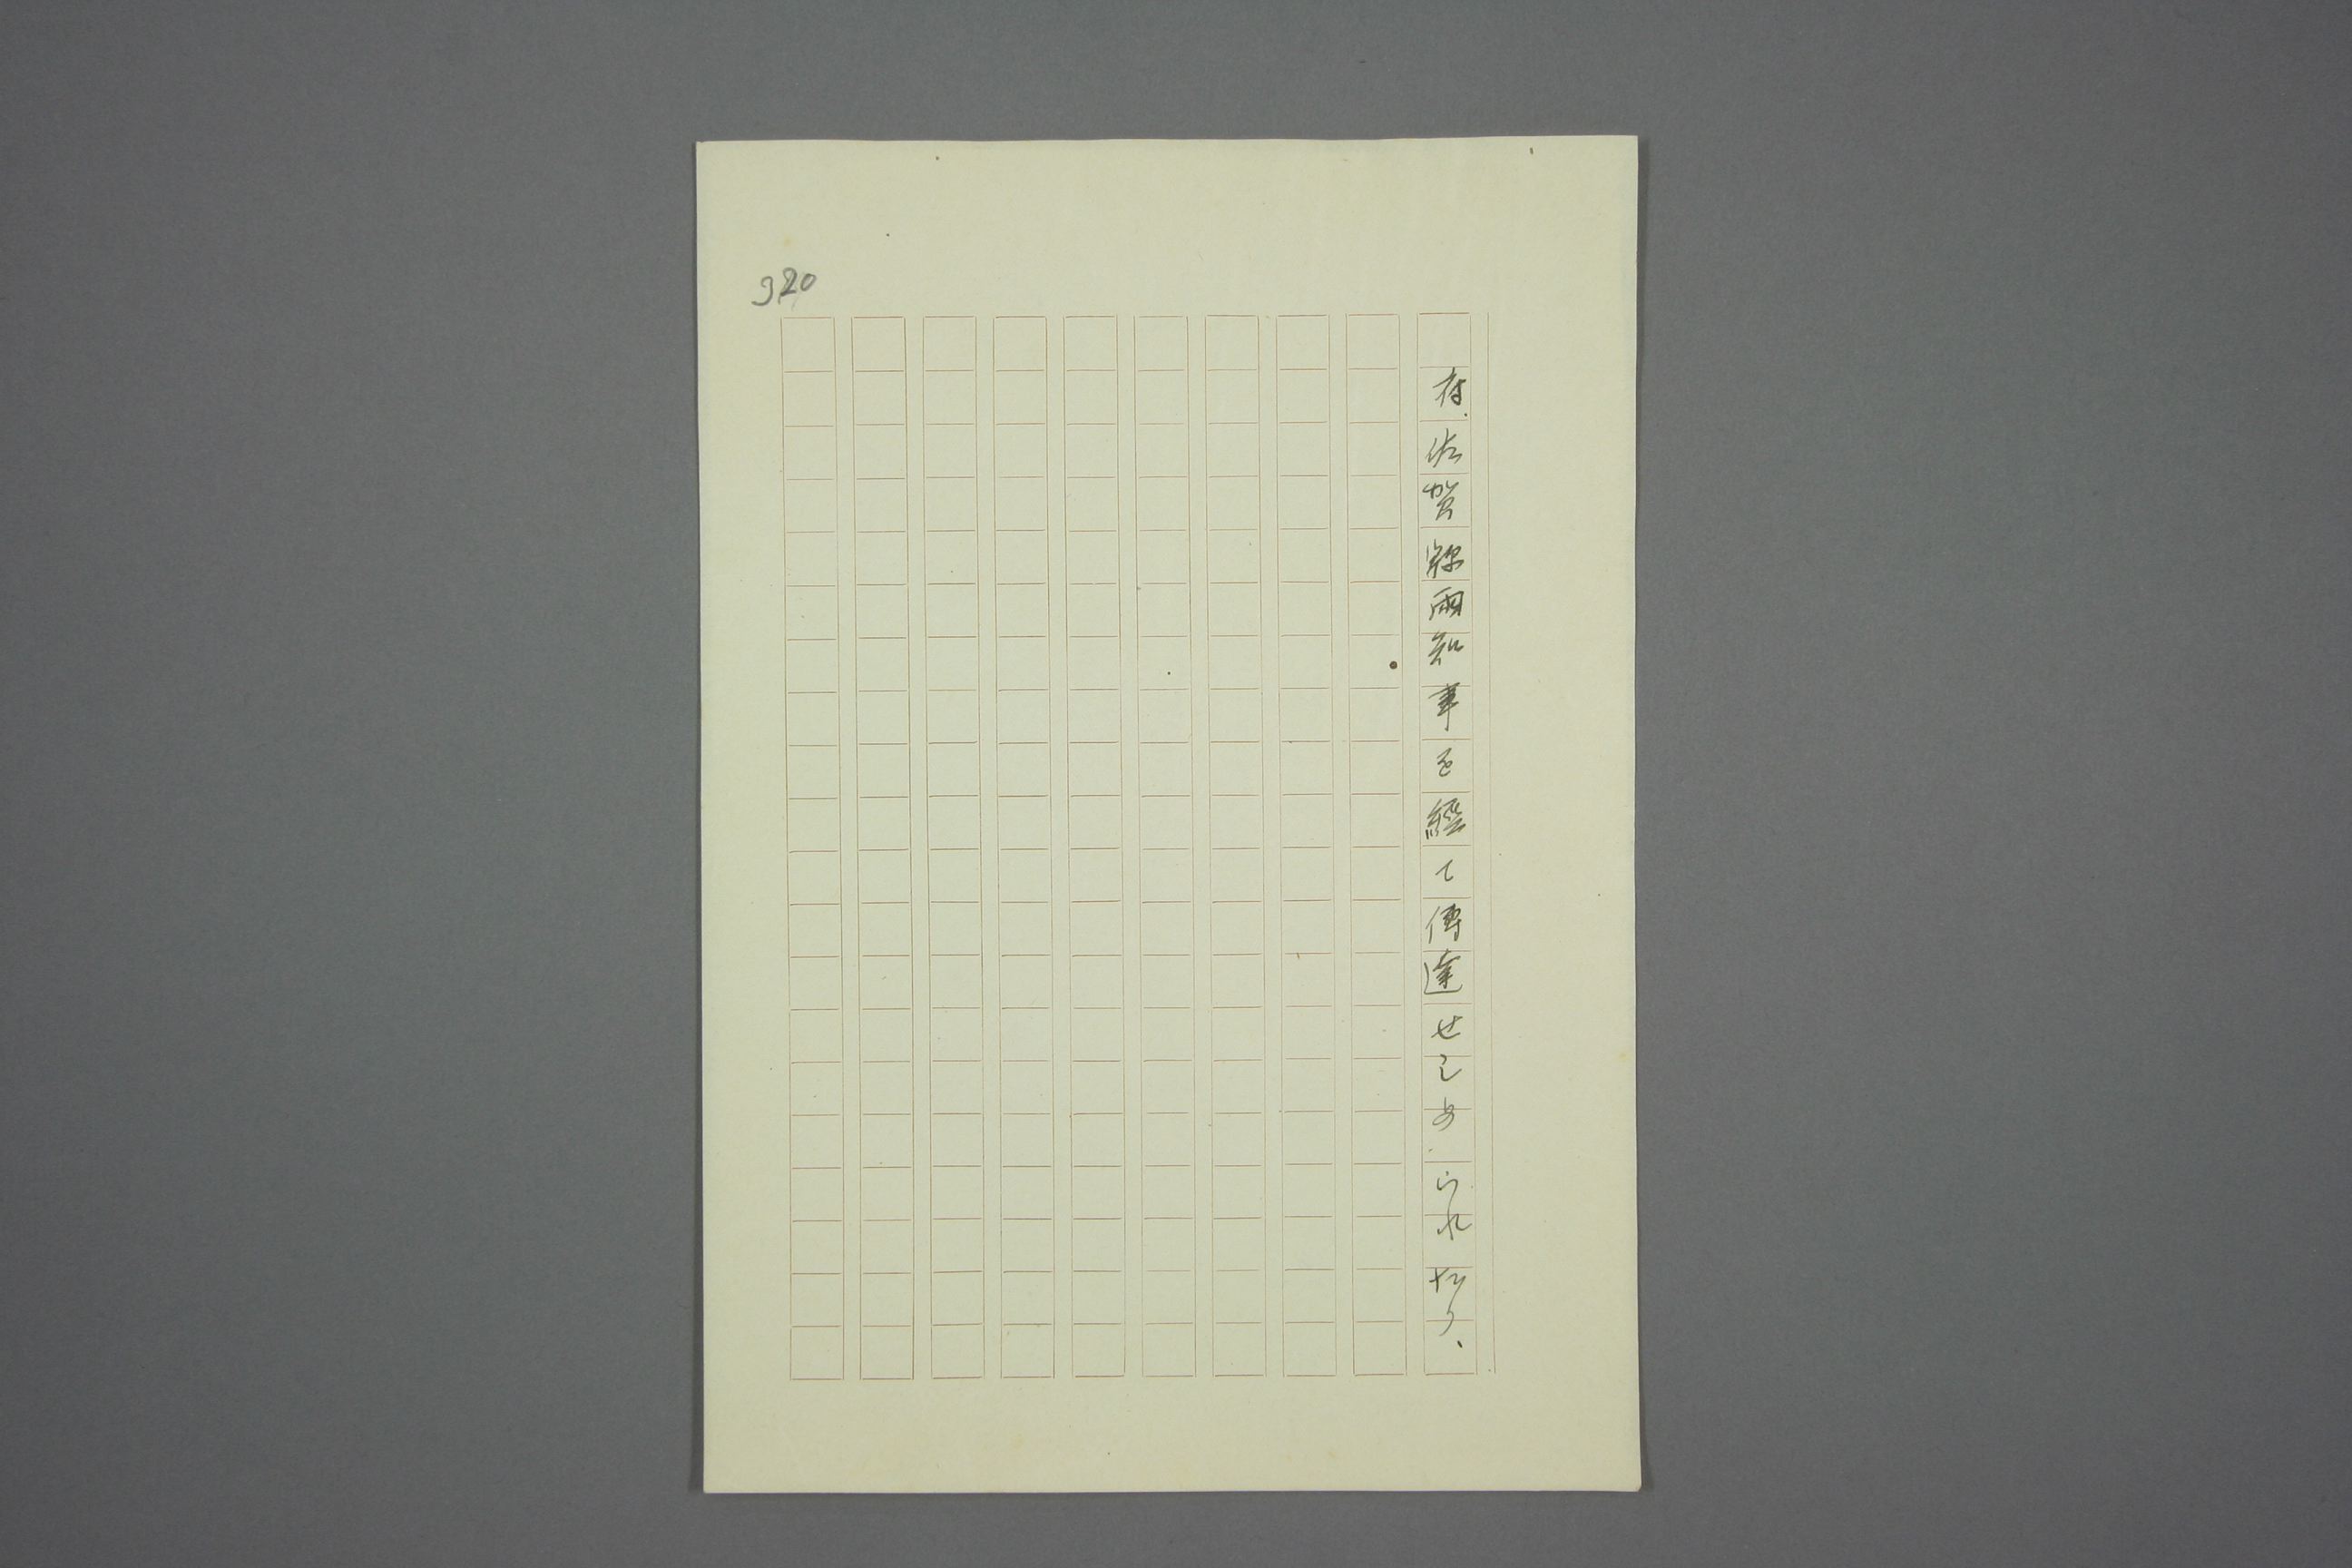 920
存佐賀縣両知事を經て傳達せしめられたり、